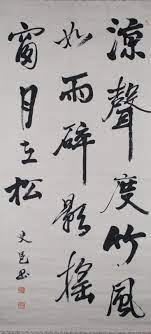 涼聲度竹風
如雨碎影搖
窗月在松
史邑書